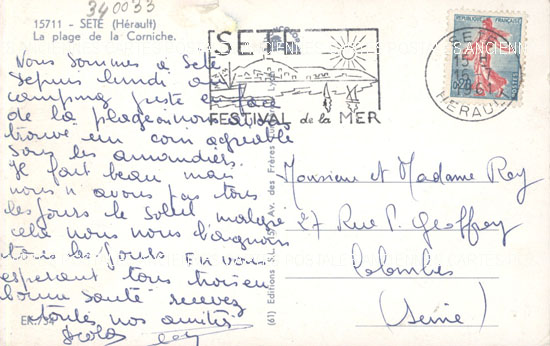 340033
15711 - SETE (Hérault)
La plage de la Corniche.
Nous sommes à Sète
depuis lundi au
camping juste en face
de la plage nous avons
trouvé un coin agréable
sous les amandiers.
Il fait beau mais
nous n'avons pas tous
les jours le soleil malgré
cela nous nous baignons
tous les jours. En vous
espérant tous trois en
bonne santé recevez
toutes nos amitiés
SETE
FESTIVAL de la MER
SETE
1961
HERAULT
REPUBLIQUE FRANÇAISE
0,20
POSTES
Monsieur et Madame Rey
27 Rue P. Geoffroy
Colombes
(Seine)
(61) Editions S.L. Av. des Frères
EK.734